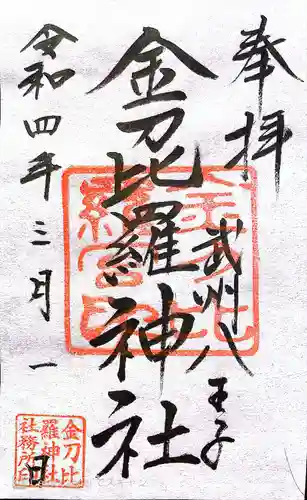 奉拝
武州八王子
金刀比羅神社
令和四年三月一日
金刀比
羅神社
社務所印